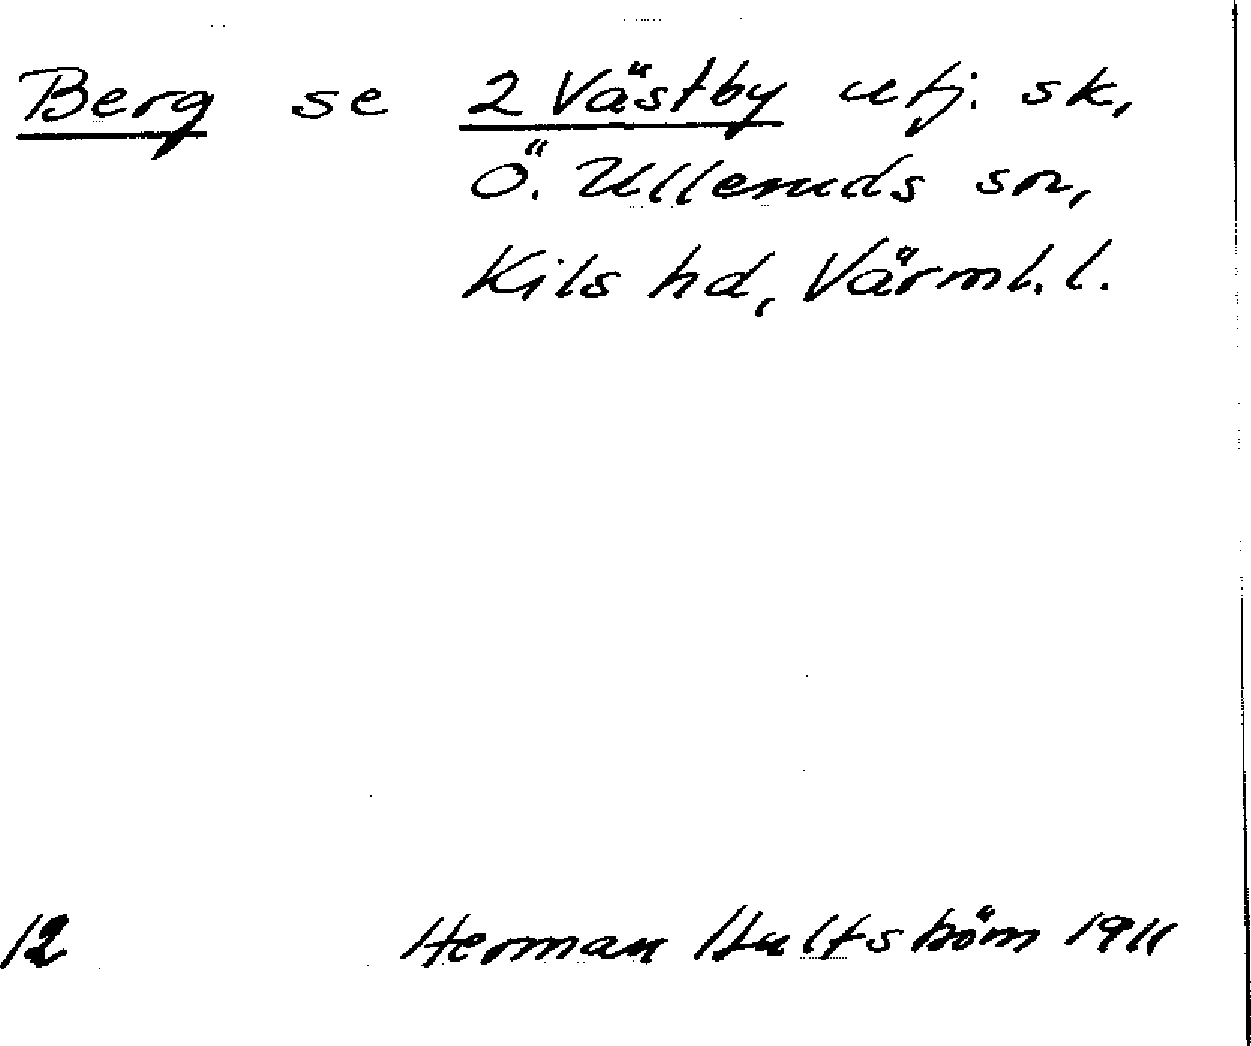 Berg se 2 Västby utj. sk,
Ö. Ulleruds sn,
Kils hd, Värml. l.
12 Herman Hultström 1911